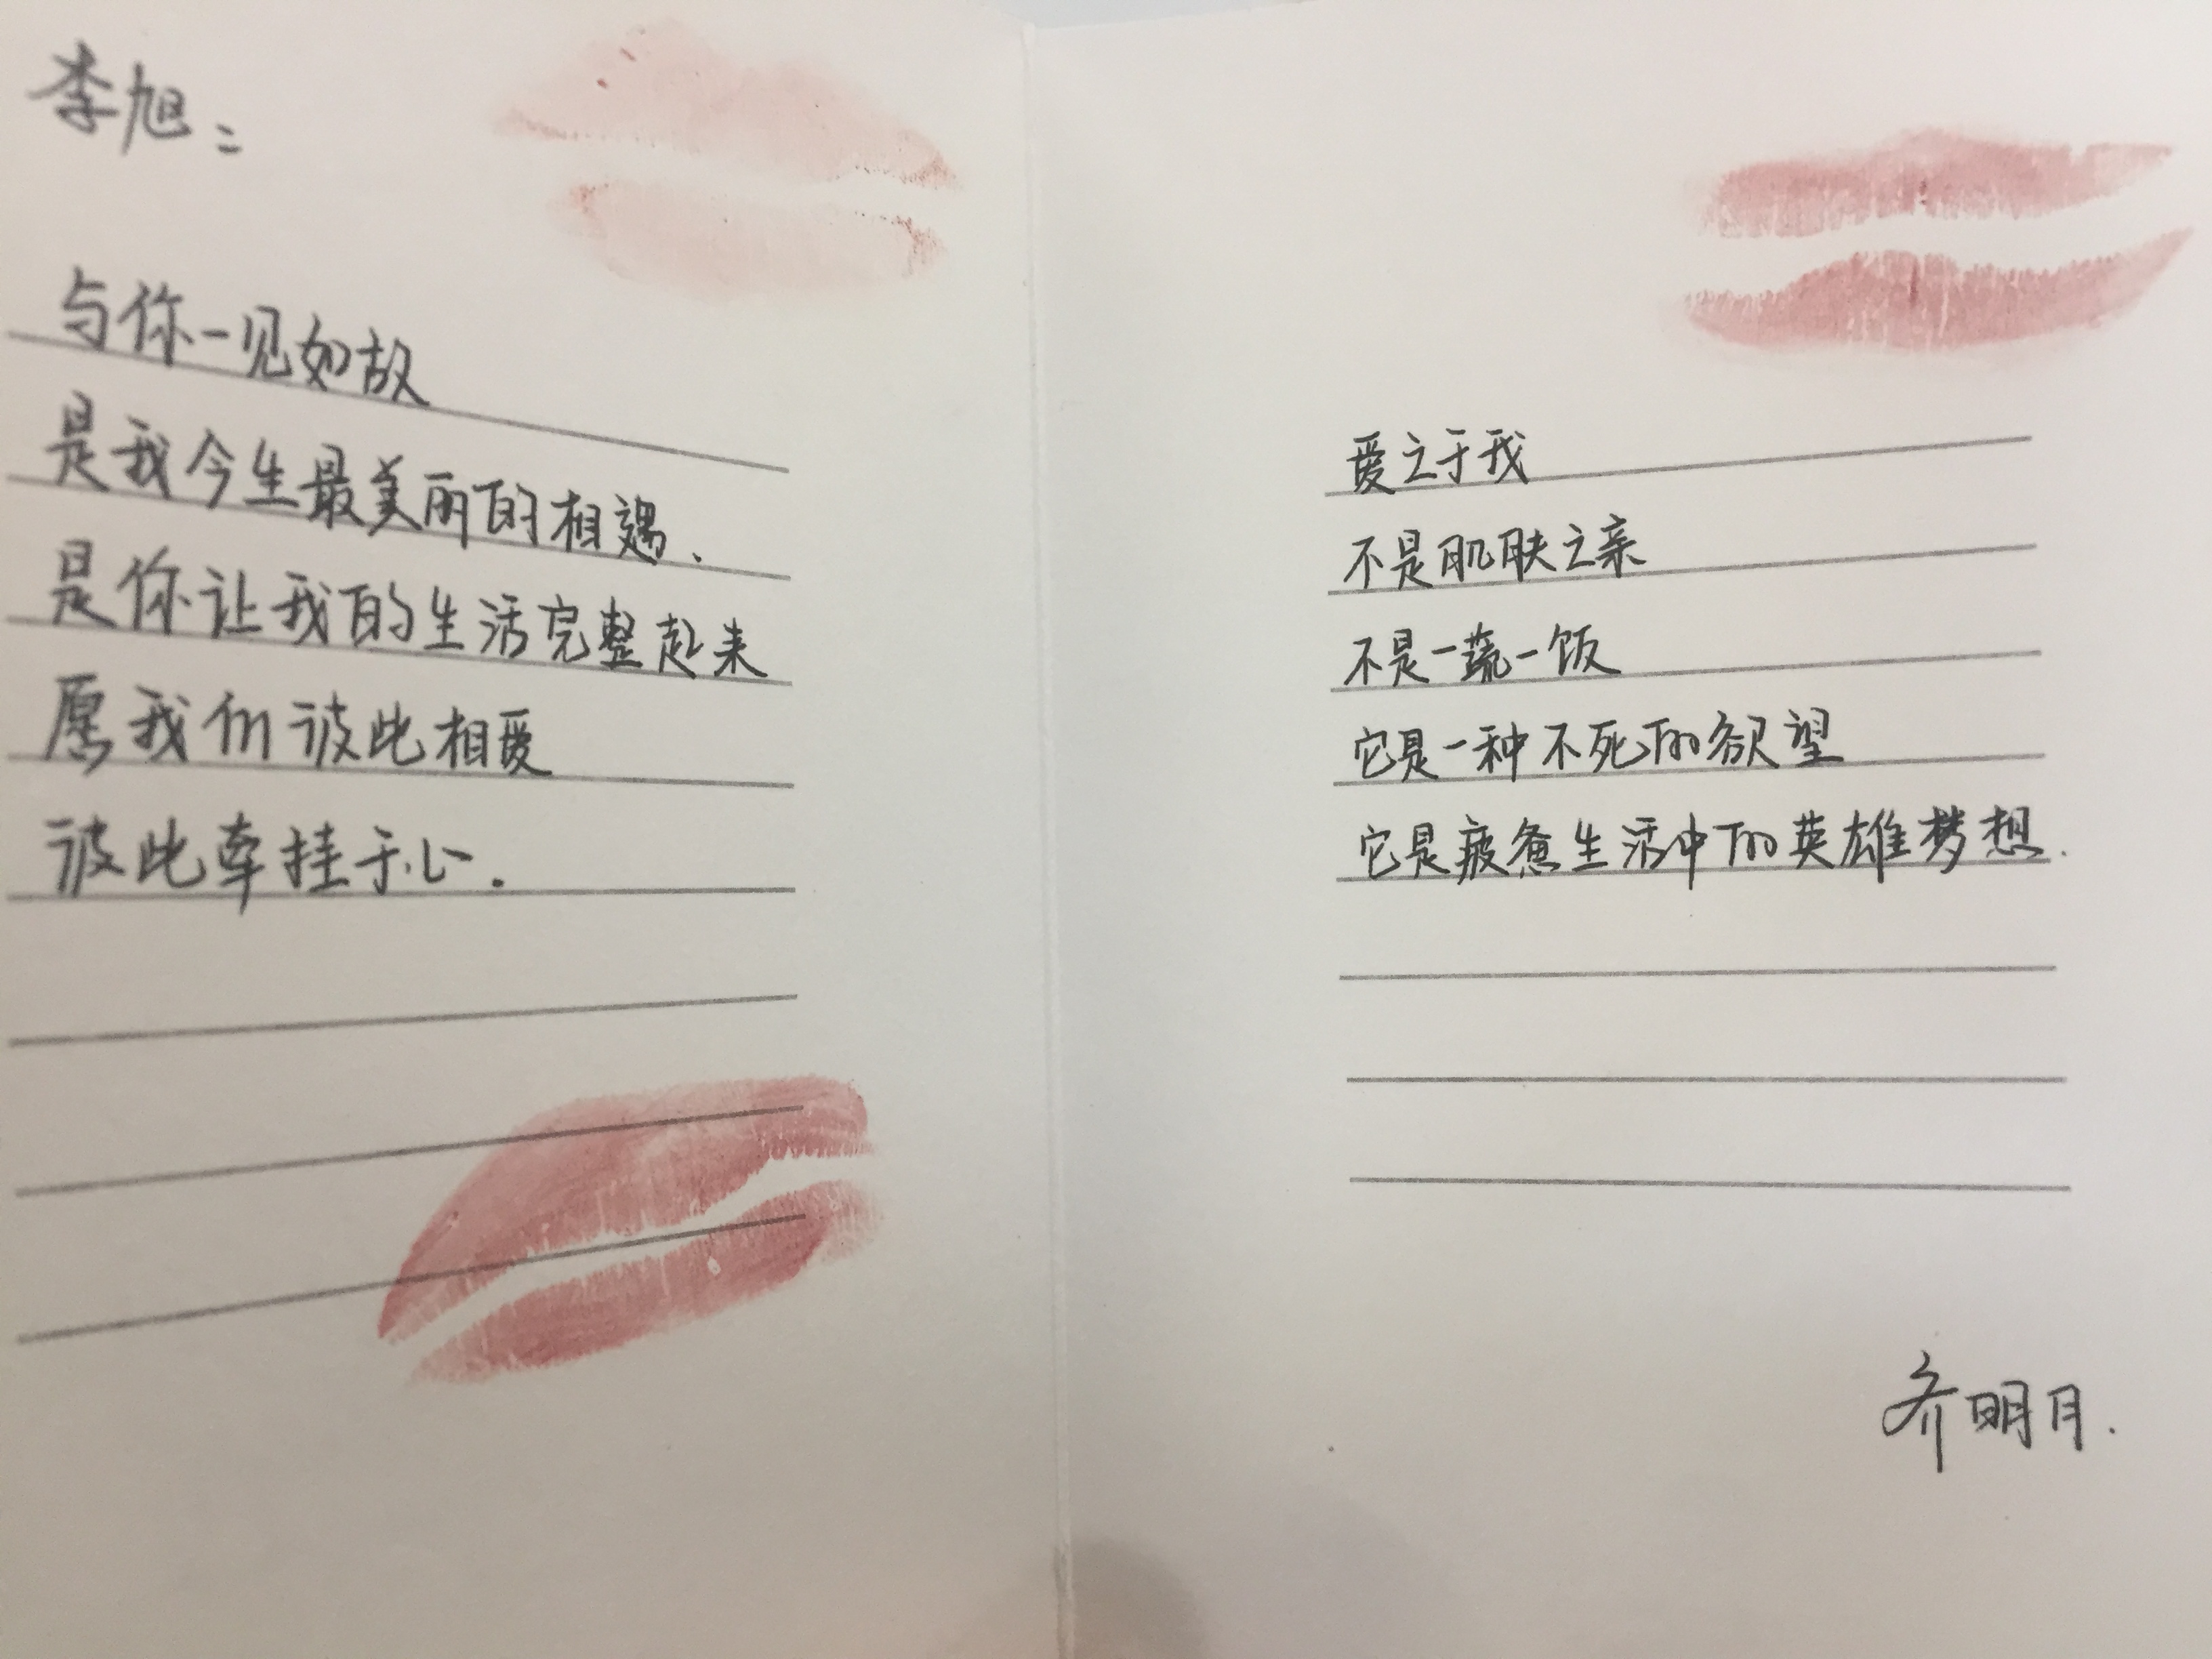 李旭：
与你一见如故
是我今生最美丽的相遇、
是你让我的生活完整起来
愿我们彼此相爱
彼此牵挂于心.
爱之于我
不是肌肤之亲
不是一蔬一饭
它是一种不死的欲望
它是疲惫生活中的英雄梦想.
齐明月.